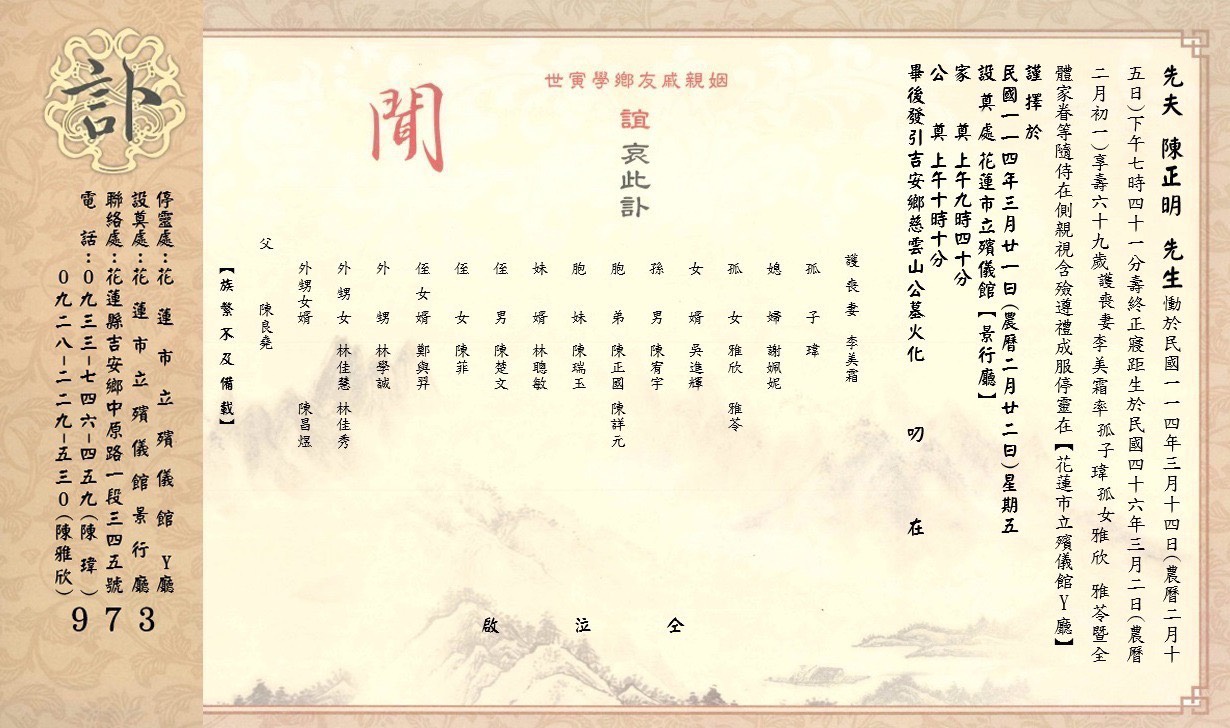 先夫 陳正明 先生慟於民國一一四年三月十四日(農曆二月十
五日)下午七時四十一分壽終正寢距生於民國四十六年三月二日(農曆
二月初一)享壽六十九歲護喪妻李美霜率孤子瑋孤女雅欣 雅苓暨全
體家眷等隨侍在側親視含殮遵禮成服停靈在【花蓮市立殯儀館Y廳】
謹擇於
民國一一四年三月廿一日(農曆二月廿二日)星期五
設奠處 花蓮市立殯儀館【景行廳】
家 奠 上午九時四十分
公 奠 上午十時十分
畢後發引吉安鄉慈雲山公墓火化 叨 在
姻親戚友鄉學寅世
誼 哀此訃
聞
護喪妻 李美霜
孤子 瑋
媳婦 謝姵妮
孤女 雅欣 雅苓
女婿 吳進輝
孫男 陳宥宇
胞弟 陳正國 陳詳元
胞妹 陳瑞玉
妹婿 林聰敏
侄男 陳楚文
侄女 陳菲
侄女婿 鄭與羿
外甥 林學誠
外甥女 林佳慧 林佳秀
外甥女婿 陳昌煜
父 陳良堯
【族繁不及備載】
仝 泣 啟
訃
停靈處:花蓮市立殯儀館Y廳
設奠處:花蓮市立殯儀館景行廳
聯絡處:花蓮縣吉安鄉中原路一段三四五號
電 話:0九三三-七四六-四五九(陳 瑋)
0九二八-二二九-五三0(陳雅欣)
973